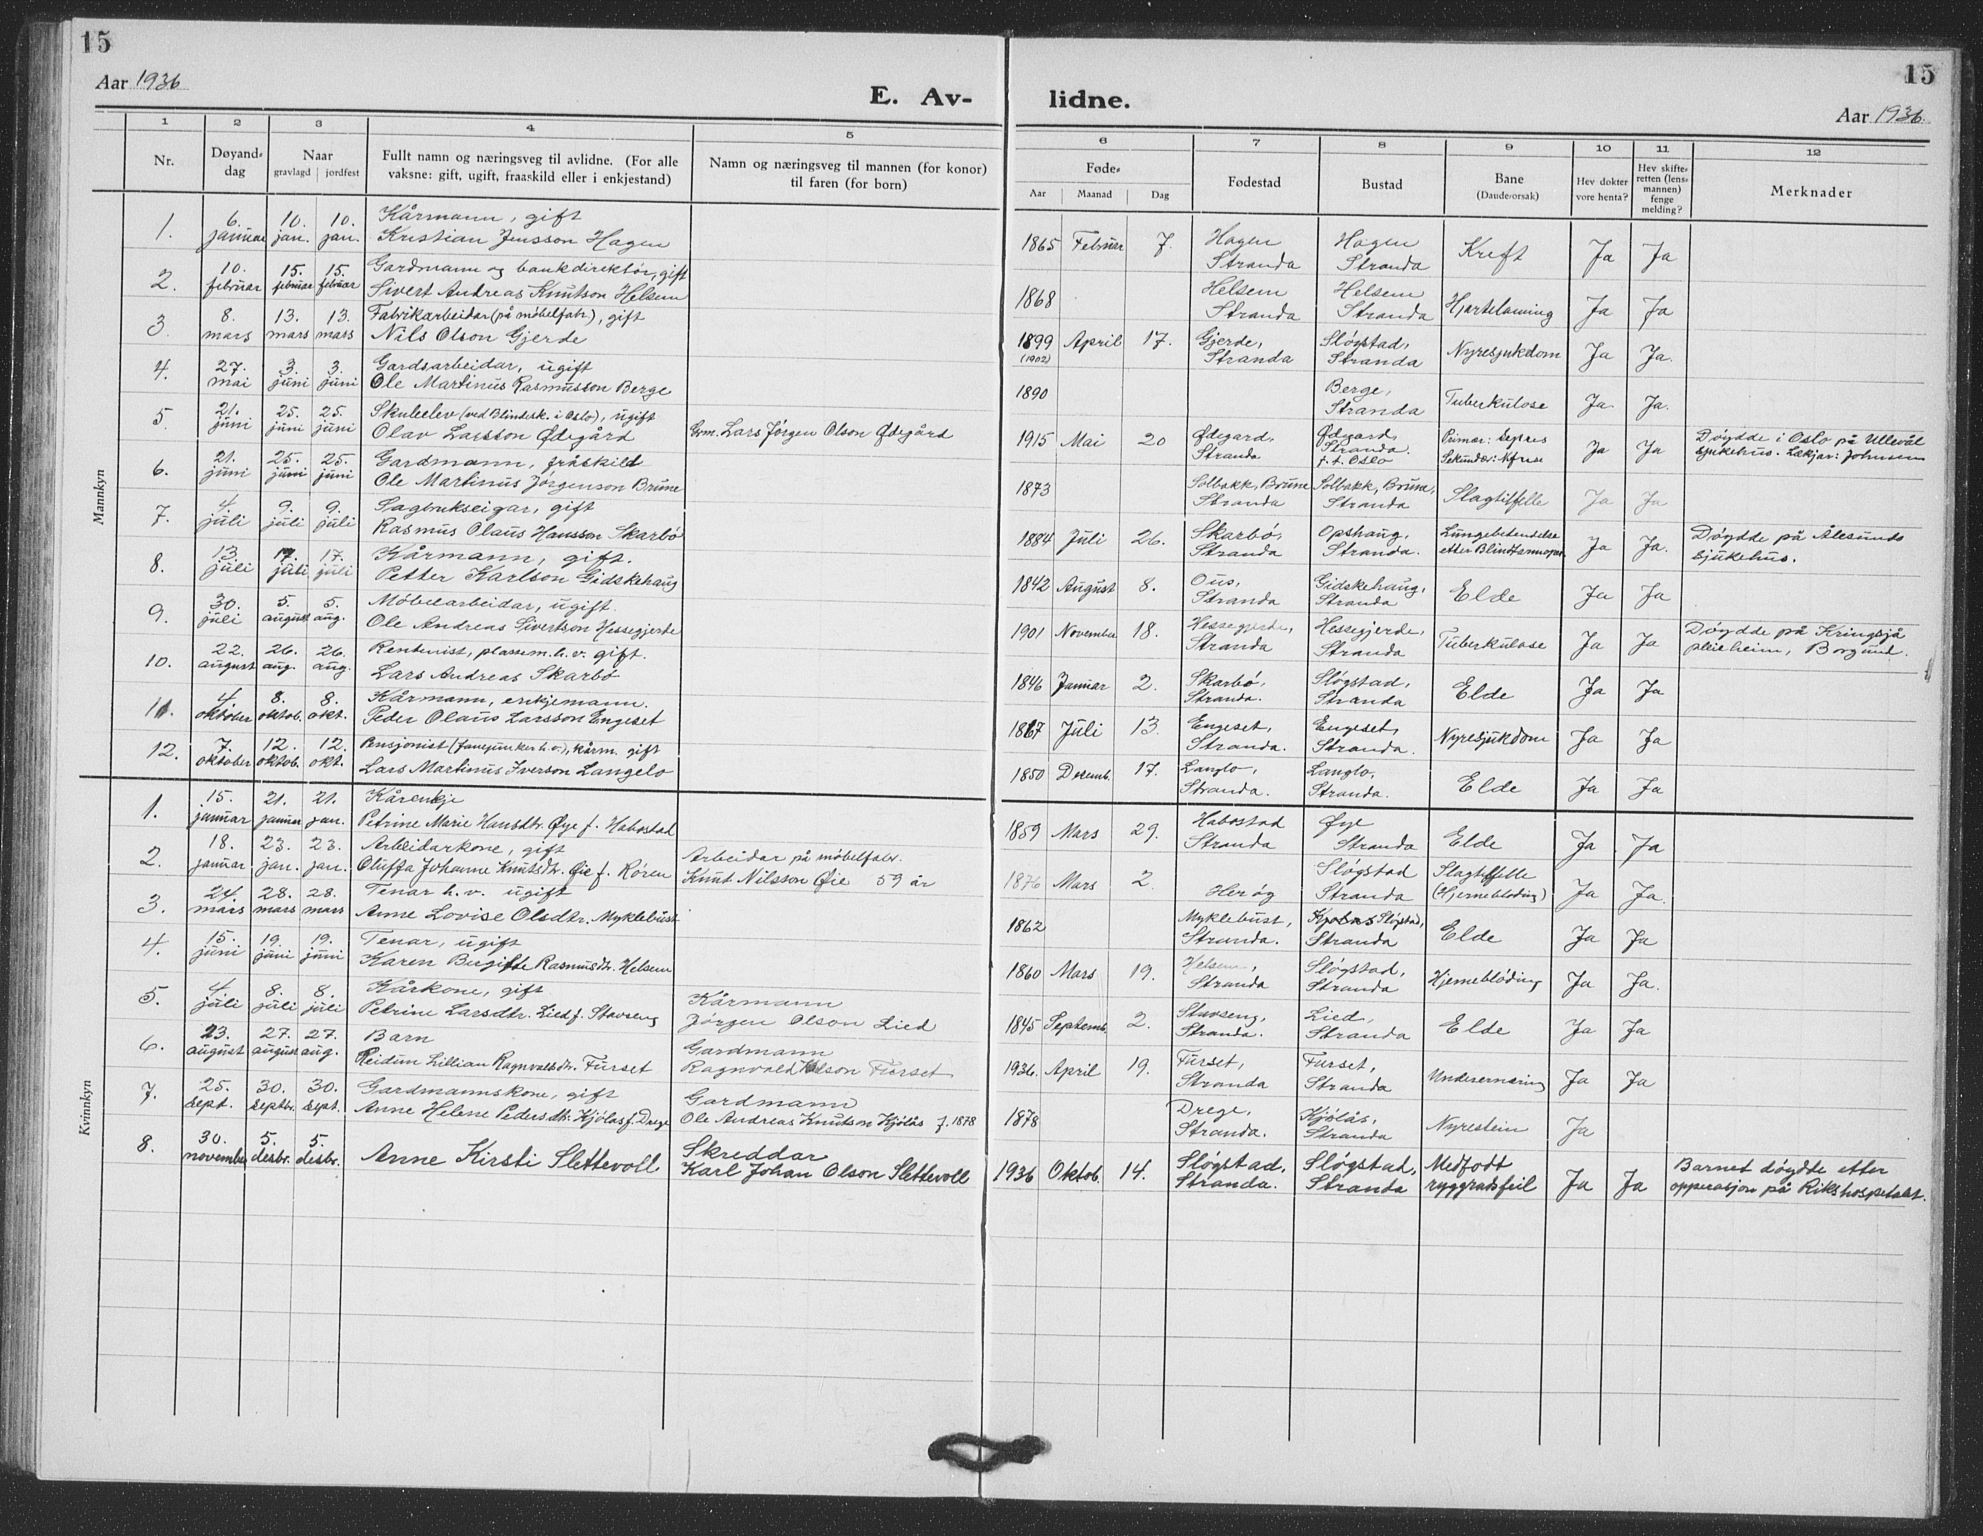 15
15
Aar 1936
E. Av-
lidne.
Aar 1936.
1 2 3 4 5 6 7 8 9 10 11 12
Nr. Døyand-dag Naar gravlagd jordfest Fullt namn og næringsveg til avlidne. (For alle vaksne: gift, ugift, fraaskild eller i enkjestand) Namn og næringsveg til mannen (for konor) til faren (for born) Føde- Aar Maanad Dag Fødestad Bustad Bane (Daudeorsak) Hev dokter vore henta? Hev skifte-retten (lens-mannen) fenge melding? Merknader
Mannkyn
1. 6. januar 10. jan. 10. jan. Kårmann, gift
Kristian Jensson Hagen 1865 Februar 7. Hagen Stranda Hagen Stranda Kreft Ja Ja
2. 10. februar 15. februar 15. februar Gardmann og bankdirektør, gift
Sivert Andreas Knutson Helsem 1868 Helsem Stranda Helsem Stranda Hjartelaming Ja Ja
3. 8. mars 13. mars 13. mars Fabrikarbeidar (på møbelfabr.), gift
Nils Olson Gjerde 1899 (1902) April 17. Gjerde, Stranda Sløgstad, Stranda Nyresjukdom Ja Ja.
4. 27. mai 3. juni 3. juni Gardsarbeidar, ugift
Ole Martinus Rasmusson Berge 1890 Berge, Stranda Tuberkulose Ja Ja.
5. 21. juni 25. juni 25. juni Skuleelev (ved Blindesk. i Oslo), ugift
Olav Larsson Ødegård Grm. Lars Jørgen Olson Ødegård 1915 Mai 20 Ødegard, Stranda Ødegard, Stranda. f. t. Oslo Primær: Sepsis Sekundær: Ja Ja Døydde i Oslo på Ullevål sjukehus. Lækjar: Johnsen
6. 21. juni 25. juni 25. juni Gardmann, fråskild
Ole Martinus Jørgenson Brune 1873 Solbakk, Brune Stranda Solbakk, Brune, Stranda Slagtilfelle Ja Ja
7. 4. juli 9. juli 9. juli Sagbrukseigar, gift
Rasmus Olaus Hansson Skarbø 1884 Juli 26. Skarbø, Stranda Opshaug, Stranda. Lungebetendelse etter Ja Ja. Døydde på Ålesunds sjukehus.
8. 13. juli 17. juli 17. juli Kårmann, gift.
Petter Karlson Gidskehaug 1842 August 8. Ous, Stranda Gidskehaug, Stranda Elde Ja Ja
9. 30. juli 5. august 5. aug. Møbelarbeidar, ugift.
Ole Andreas Sivertson Hessegjerde 1901 November 18. Hessegjerde, Stranda Hessegjerde, Stranda Tuberkulose Ja Ja Døydde på Kringsjå pleieheim, Borgund.
10. 22. august 26. aug. 26. aug. Rentenist, plassem. h. v. gift.
Lars Andreas Skarbø 1846 Januar 2. Skarbø, Stranda. Sløgstad, Stranda Elde Ja Ja
11. 4. oktober 8. oktob. 8. okt. Kårmann, enkjemann.
Peder Olaus Larsson Engeset 1867 Juli 13. Engeset, Stranda. Engeset, Stranda. Nyresjukdom Ja Ja
12. 7. oktober 12. oktob. 12. okt. Pensjonist h. v.), kårm. gift
Lars Martinus Iverson Langelo 1850 Desemb. 17. Langlo, Stranda. Langlo, Stranda. Elde Ja Ja
Kvinnkyn
1. 15. januar 21. januar 21. jan. Kårenkje
Petrine Marie Hansdtr. Øye f. Habostad 1859 Mars 29. Habostad Stranda Øye Stranda Elde Ja Ja
2. 18. januar 23. jan. 23. jan. Arbeidarkone, gift
Oluffa Johanne Knutsdtr. Øie f. Røren Arbeidar på møbelfabr. Knut Nilsson Øie 59 år 1876 Mars 2. Herøy Sløgstad Stranda Slagtilfelle (Hjernebløding) Ja Ja.
3. 24. mars 28. mars 28. mars Tenar h. v. ugift
Anne Lovise Olsdtr. Myklebust 1862 Myklebust, Stranda. Sløgstad, Stranda Elde Ja Ja
4. 15. juni 19. juni 19. juni Tenar, ugift
Karen Birgitte Rasmusdtr. Helsem 1860 Mars 19. Helsem, Stranda Sløgstad, Stranda Hjernebløding Ja Ja.
5. 4. juli 8. juli 8. juli Kårkone, gift
Petrine Larsdtr. Lied f. Stavseng Kårmann Jørgen Olson Lied 1845 Septemb. 2. Stavseng, Stranda. Lied, Stranda Elde Ja Ja
6. 23. august 27. august 27. aug. Barn
Reidun Lillian Ragnvaldsdtr. Furset Gardmann Ragnvald Olson Furset 1936. April 19. Furset, Stranda Furset, Stranda Underernæring Ja Ja
7. 25. sept. 30. septbr. 30. sept. Gardmannskone, gift
Anne Helene Pedersdtr. Kjølås f. Drege Gardmann Ole Andreas Knutson Kjølås f. 1878 1878 Drege, Stranda. Kjølås, Stranda Nyrestein Ja
8. 30. november 5. desbr. 5. desbr. Anne Kirsti Slettevoll Skreddar Karl Johan Olson Slettevoll 1936 Oktob. 14. Sløgstad, Stranda. Sløgstad, Stranda Medfødt ryggradsfeil Ja Ja Barnet døydde etter opperasjon på Rikshospitalet.